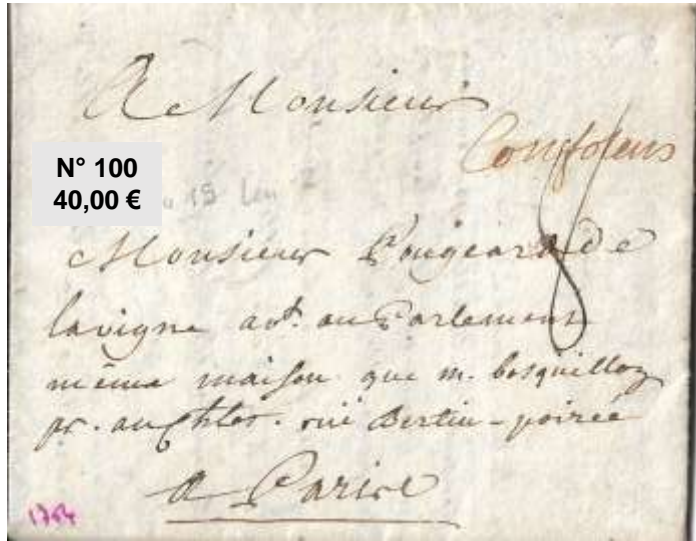 A Monsieur
Confolens
N° 100
40,00 €
8
Monsieur Fougeard de
lavigne avt. au Parlement
même maison que m. bosquillon
pr. au Chlet. ruë Bertin-poirée
a Paris
1764